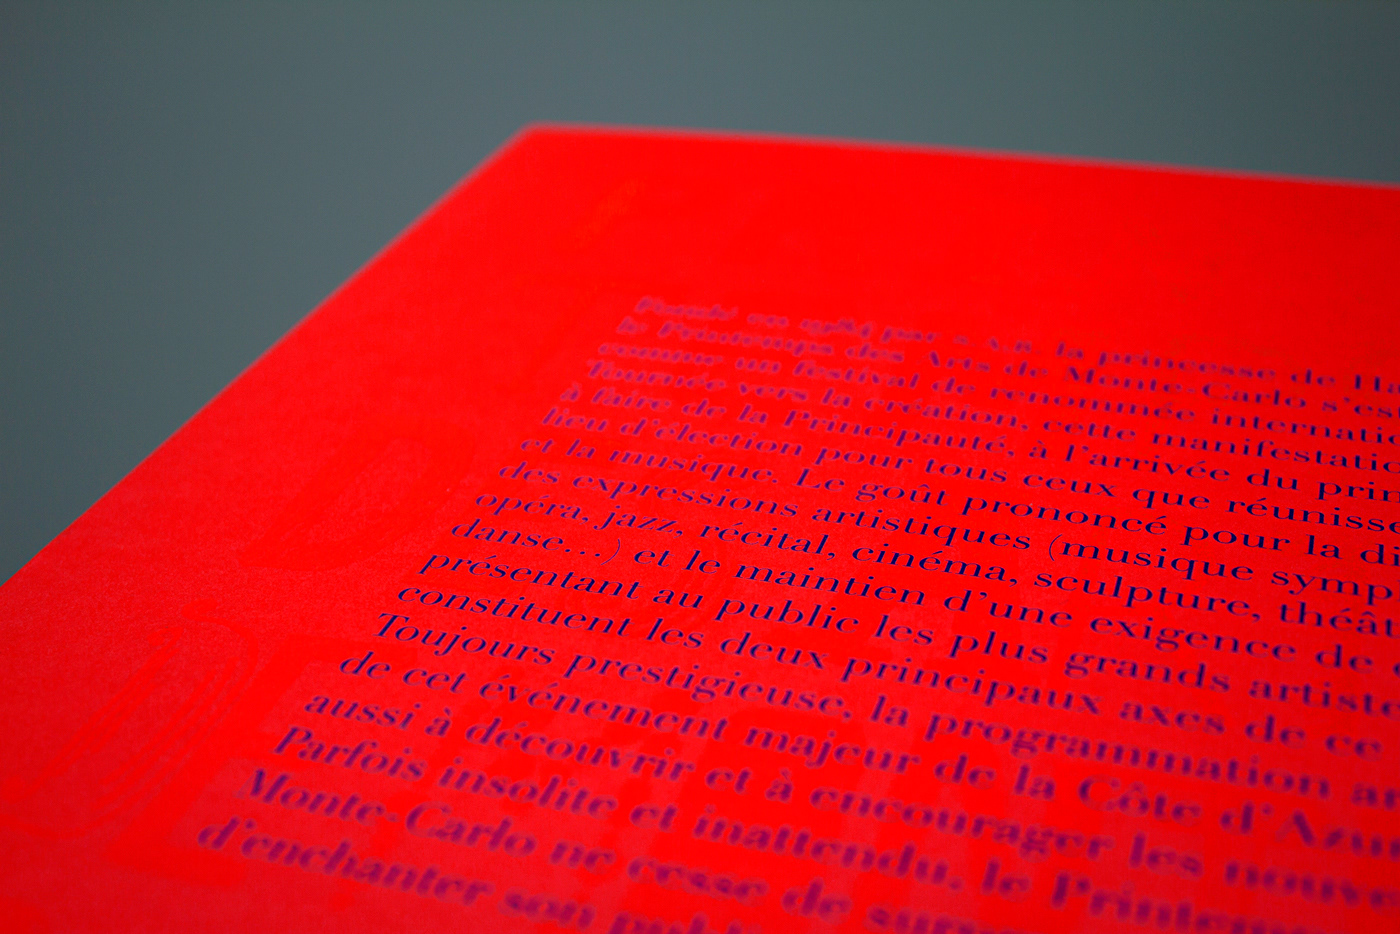 Fondé en 1984 par S.A.R. la princesse de Ha
le Printemps des Arts de Monte-Carlo s'es
comme un festival de renommée internatio
Tournée vers la création, cette manifestatio
à faire de la Principauté, à l'arrivée du prin
lieu d'élection pour tous ceux que réunisse
et la musique. Le goût prononcé pour la di
des expressions artistiques (musique symp
opéra, jazz, récital, cinéma, sculpture, théât
danse...) et le maintien d'une exigence de
présentant au public les plus grands artiste
constituent les deux principaux axes de ce
Toujours prestigieuse, la programmation a
de cet événement majeur de la Côte d'Azu
aussi à découvrir et à encourager les nouve
Parfois insolite et inattendu, le Printem
Monte-Carlo ne cesse de surp
d'enchanter son publi